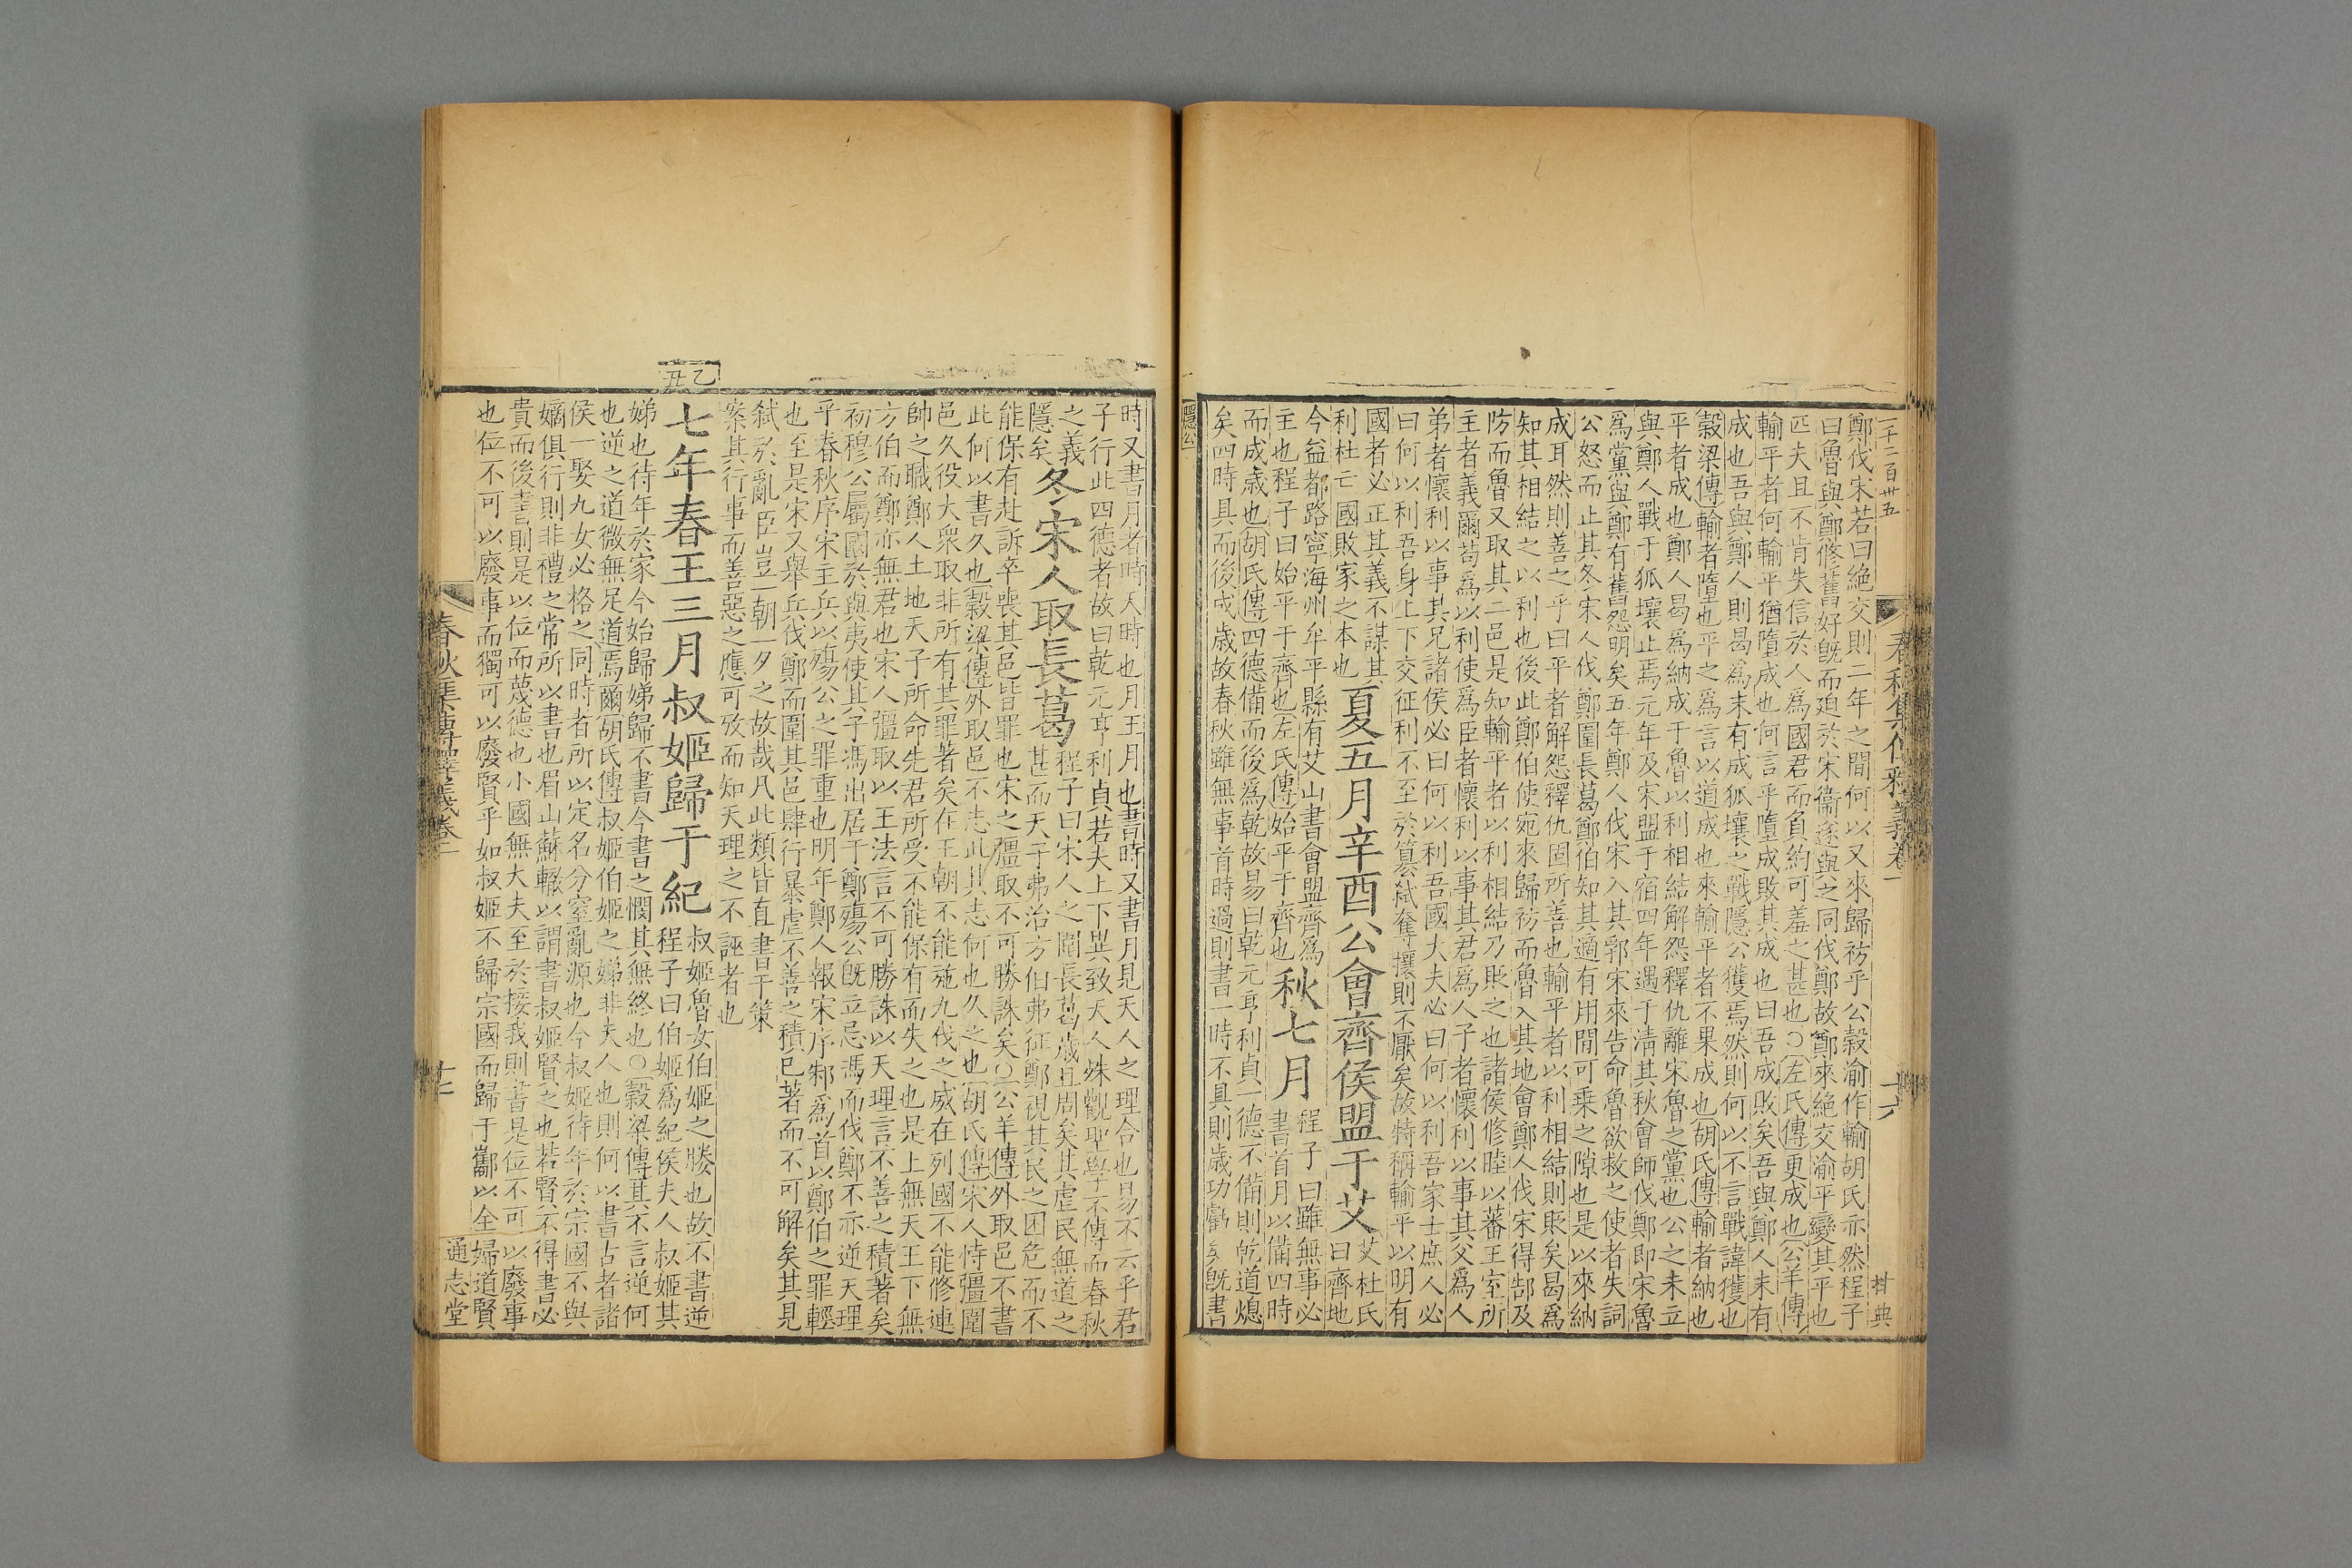 一千二百卅五
春秋集傳釋義卷一
十六
鄭伐宋若曰絶交則二年之間何以又來歸祊乎公穀渝作輸胡氏亦然程子
曰魯與鄭修舊好旣而迫於宋衞遂與之同伐鄭故鄭來絶交渝平變其平也
匹夫且不肯失信於人爲國君而負約可羞之甚也○左氏傳更成也公羊傳
輸平者何輸平猶墮成也何言乎墮成敗其成也曰吾成敗矣吾與鄭人末有
成也吾與鄭人則曷爲末有成狐壤之戰隱公獲焉然則何以不言戰諱獲也
穀梁傳輸者墮也平之爲言以道成也來輸平者不果成也胡氏傳輸者納也
平者成也鄭人曷爲納成于魯以利相結解怨釋仇離宋魯之黨也公之未立
與鄭人戰于狐壤止焉元年及宋盟于宿四年遇于淸其秋會師伐鄭即宋魯
爲黨與鄭有舊怨明矣五年鄭人伐宋入其郛宋來告命魯欲救之使者失詞
公怒而止其冬宋人伐鄭圍長葛鄭伯知其適有用間可乗之隙也是以來納
成耳然則善之乎曰平者解怨釋仇固所善也輸平者以利相結則貶矣曷爲
知其相結之以利也後此鄭伯使宛來歸祊而魯入其地會鄭人伐宋得郜及
防而魯又取其二邑是知輸平者以利相結乃貶之也諸侯修睦以蕃王室所
主者義爾苟爲以利使爲臣者懷利以事其君爲人子者懷利以事其父爲人
弟者懷利以事其兄諸侯必曰何以利吾國大夫必曰何以利吾家士庶人必
曰何以利吾身上下交征利不至於簒弒奪攘則不厭矣故特稱輸平以明有
國者必正其義不謀其
利杜亡國敗家之本也
夏五月辛酉公會齊侯盟于艾
艾杜氏
曰齊地
今益都路寧海州牟平縣有艾山書會盟齊爲
主也程子曰始平于齊也左氏傳始平于齊也
秋七月
程子曰雖無事必
書首月以備四時
而成歲也胡氏傳四德備而後爲乾故易曰乾元亨利貞一德不備則乾道熄
矣四時具而後成歲故春秋雖無事首時過則書一時不具則歲功虧矣旣書
隱公
時又書月者時天時也月王月也書時又書月見天人之理合也易不云乎君
子行此四德者故曰乾元亨利貞若夫上下異致天人殊觀聖學不傳而春秋
之義
隱矣
冬宋人取長葛
程子曰宋人之圍長葛歲且周矣其虐民無道之
甚而天子弗治方伯弗征鄭視其民之困危而不
能保有赴訴卒喪其邑皆罪也宋之彊取不可勝誅矣○公羊傳外取邑不書
此何以書久也穀梁傳外取邑不志此其志何也久之也胡氏傳宋人恃彊圍
邑久役大衆取非所有其罪著矣在王朝不能施九伐之威在列國不能修連
帥之職鄭人土地天子所命先君所受不能保有而失之也是上無天王下無
方伯而鄭亦無君也宋人彊取以王法言不可勝誅以天理言不善之積著矣
初穆公屬國於與夷使其子馮出居于鄭殤公旣立忌馮而伐鄭不亦逆天理
乎春秋序宋主兵以殤公之罪重也明年鄭人報宋序邾爲首以鄭伯之罪輕
也至是宋又舉兵伐鄭而圍其邑肆行暴虐不善之積已著而不可解矣其見
弒於亂臣豈一朝一夕之故哉凡此類皆直書于策
案其行事而善惡之應可攷而知天理之不誣者也
乙丑
七年春王三月叔姬歸于紀
叔姬魯女伯姬之媵也故不書逆
程子曰伯姬爲紀侯夫人叔姬其
娣也待年於家今始歸娣歸不書今書之憫其無終也○穀梁傳其不言逆何
也逆之道微無足道焉爾胡氏傳叔姬伯姬之娣非夫人也則何以書古者諸
侯一娶九女必格之同時者所以定名分窒亂源也今叔姬待年於宗國不與
嫡俱行則非禮之常所以書也眉山蘇轍以謂書叔姬賢之也若賢不得書必
貴而後書則是以位而蔑德也小國無大夫至於接我則書是位不可以廢事
也位不可以廢事而獨可以廢賢乎如叔姬不歸宗國而歸于酅以全婦道賢
春秋集傳釋義卷一
十七
通志堂